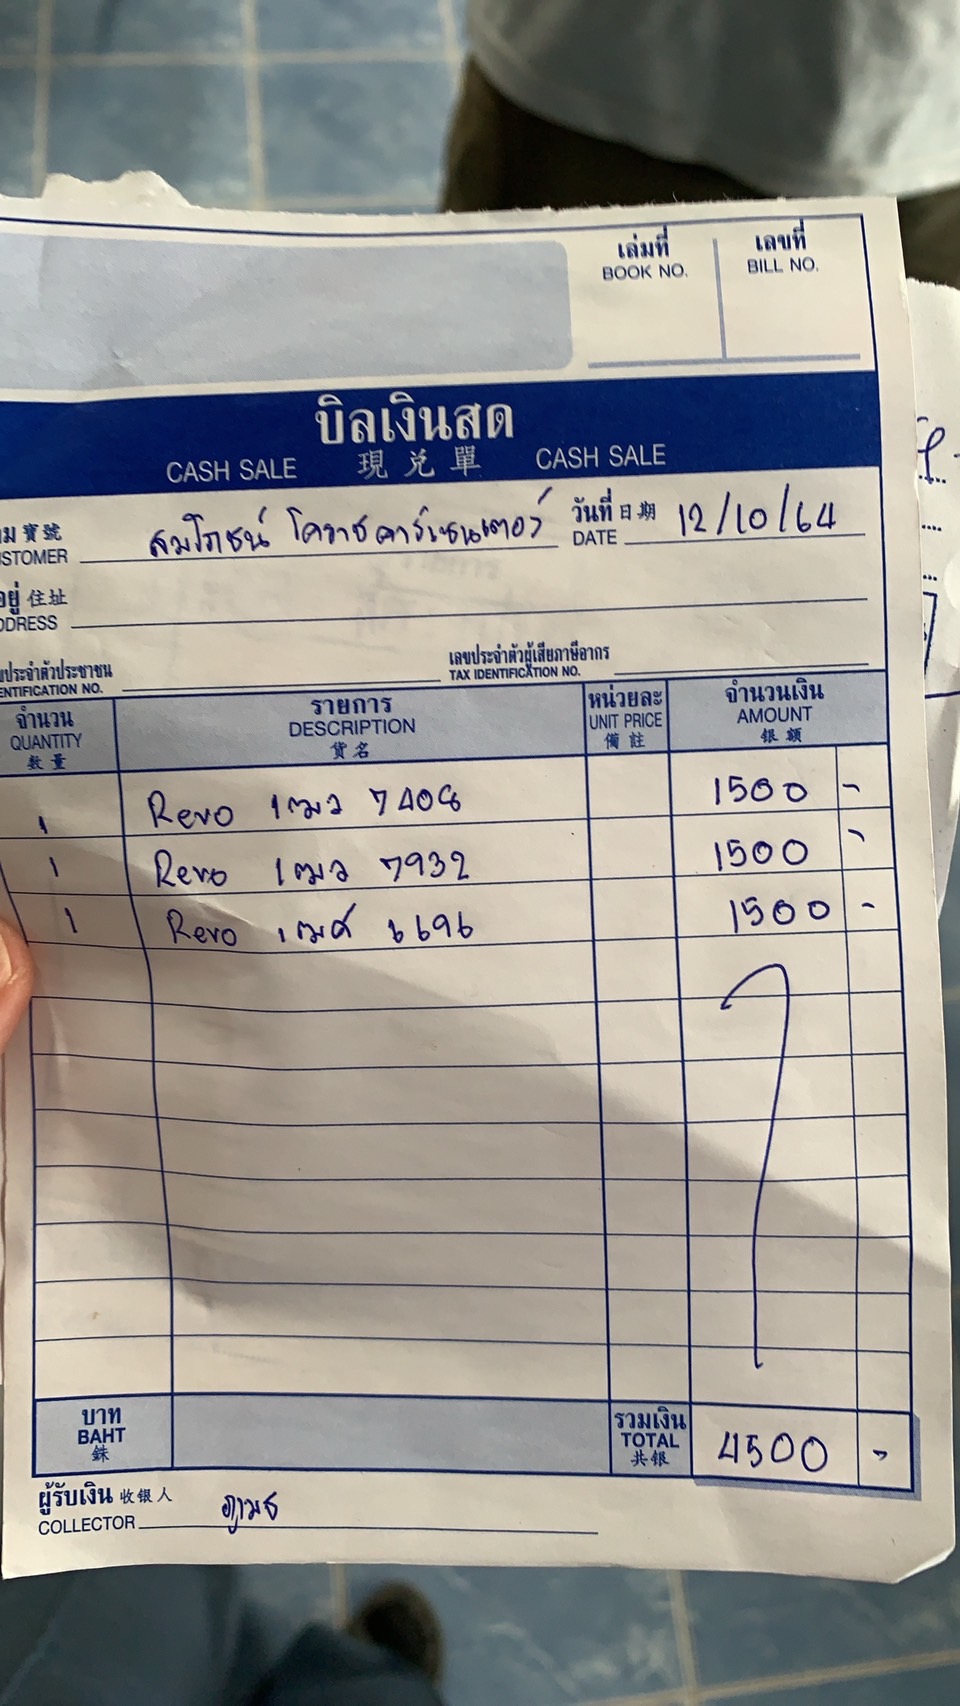 เล่มที่ เลขที่
BOOK NO. BILL NO.
บิลเงินสด
CASH SALE 現兌單 CASH SALE
าม寶號 สมโภชน์ โคราชคาร์เซนเตอร์ วันที่日期 12/10/64
STOMER DATE
อยู่住址
DDRESS
ประจำตัวประชาชน เลขประจำตัวผู้เสียภาษีอากร
ENTIFICATION NO. TAX IDENTIFICATION NO.
จำนวน รายการ หน่วยละ จำนวนเงิน
QUANTITY DESCRIPTION UNIT PRICE AMOUNT
數量 貨名 備註 銀額
1 Revo 7408 1500 -
1 Revo 7932 1500 -
1 Revo 6696 1500 -
บาท รวมเงิน
BAHT TOTAL 4500 -
銖 共银
ผู้รับเงิน 收银人
COLLECTOR